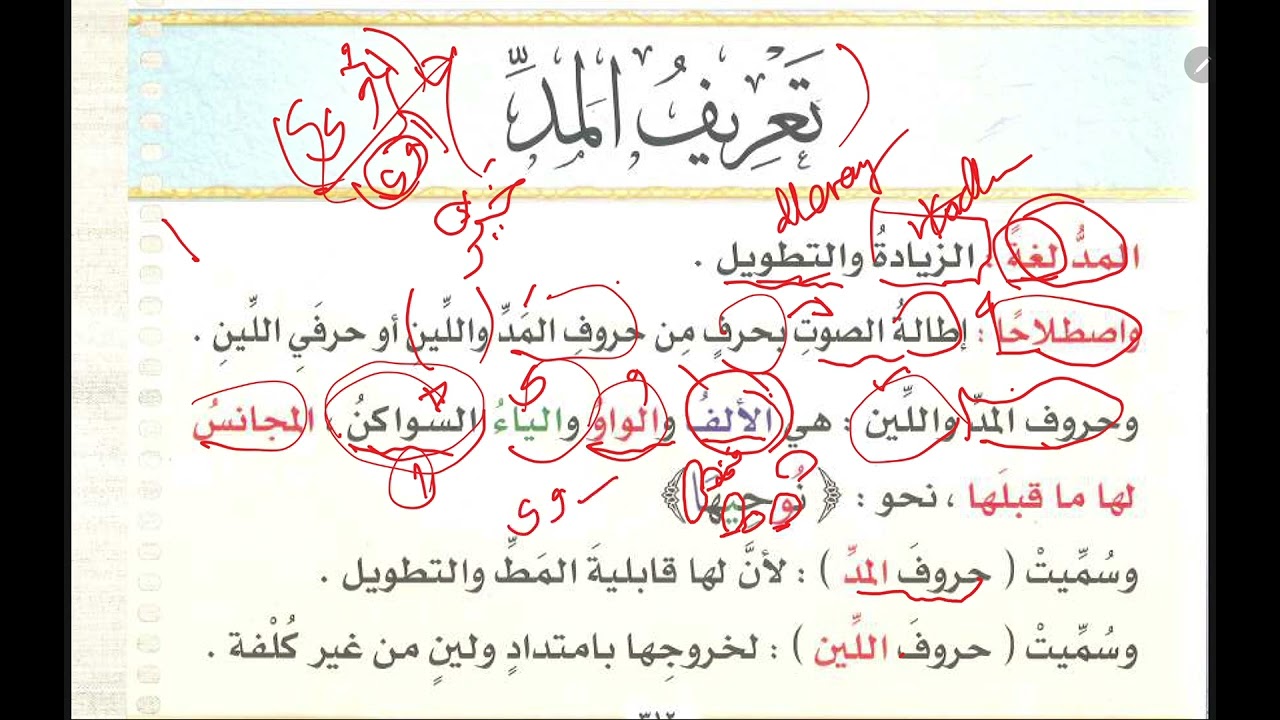 تَعرِيفُ المَدِّ
المدُّ لغةً : الزيادةُ والتطويل .
واصطلاحًا : إطالةُ الصوتِ بحرفٍ مِن حروفِ المَدِّ واللِّين أو حرفَيِ اللِّينِ .
وحروف المدِّ واللِّين : هي الألفُ والواوُ والياءُ السواكنُ ، المجانسُ
لها ما قبلَها ، نحو : ﴿ نُوحِيهَا ﴾
وسُمِّيتْ ( حروفَ المدِّ ) : لأنَّ لها قابليةَ المَطِّ والتطويل .
وسُمِّيتْ ( حروفَ اللِّين ) : لخروجِها بامتدادٍ ولينٍ من غير كُلْفة .
٣١٢